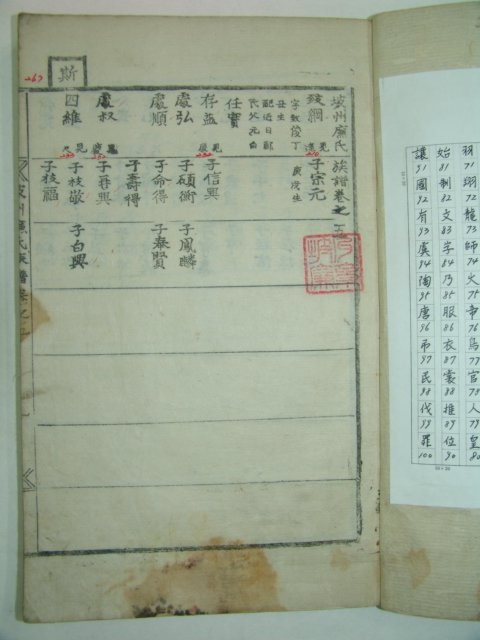 斯
坡州廉氏族譜卷之五
致綱
字敬俊丁
丑生
子宗元
庚戌生
任實
存益
子信興
處弘
子碩衡
子鳳麟
處順
子命得
子泰賢
子壽得
處叔
子再興
四維
子枝敬
子白興
子枝福
羽 71
翔 72
龍 73
師 74
火 75
帝 76
鳥 77
官 78
人 79
皇 80
始 81
制 82
文 83
字 84
乃 85
服 86
衣 87
裳 88
推 89
位 90
讓 91
國 92
有 93
虞 94
陶 95
唐 96
弔 97
民 98
伐 99
罪 100